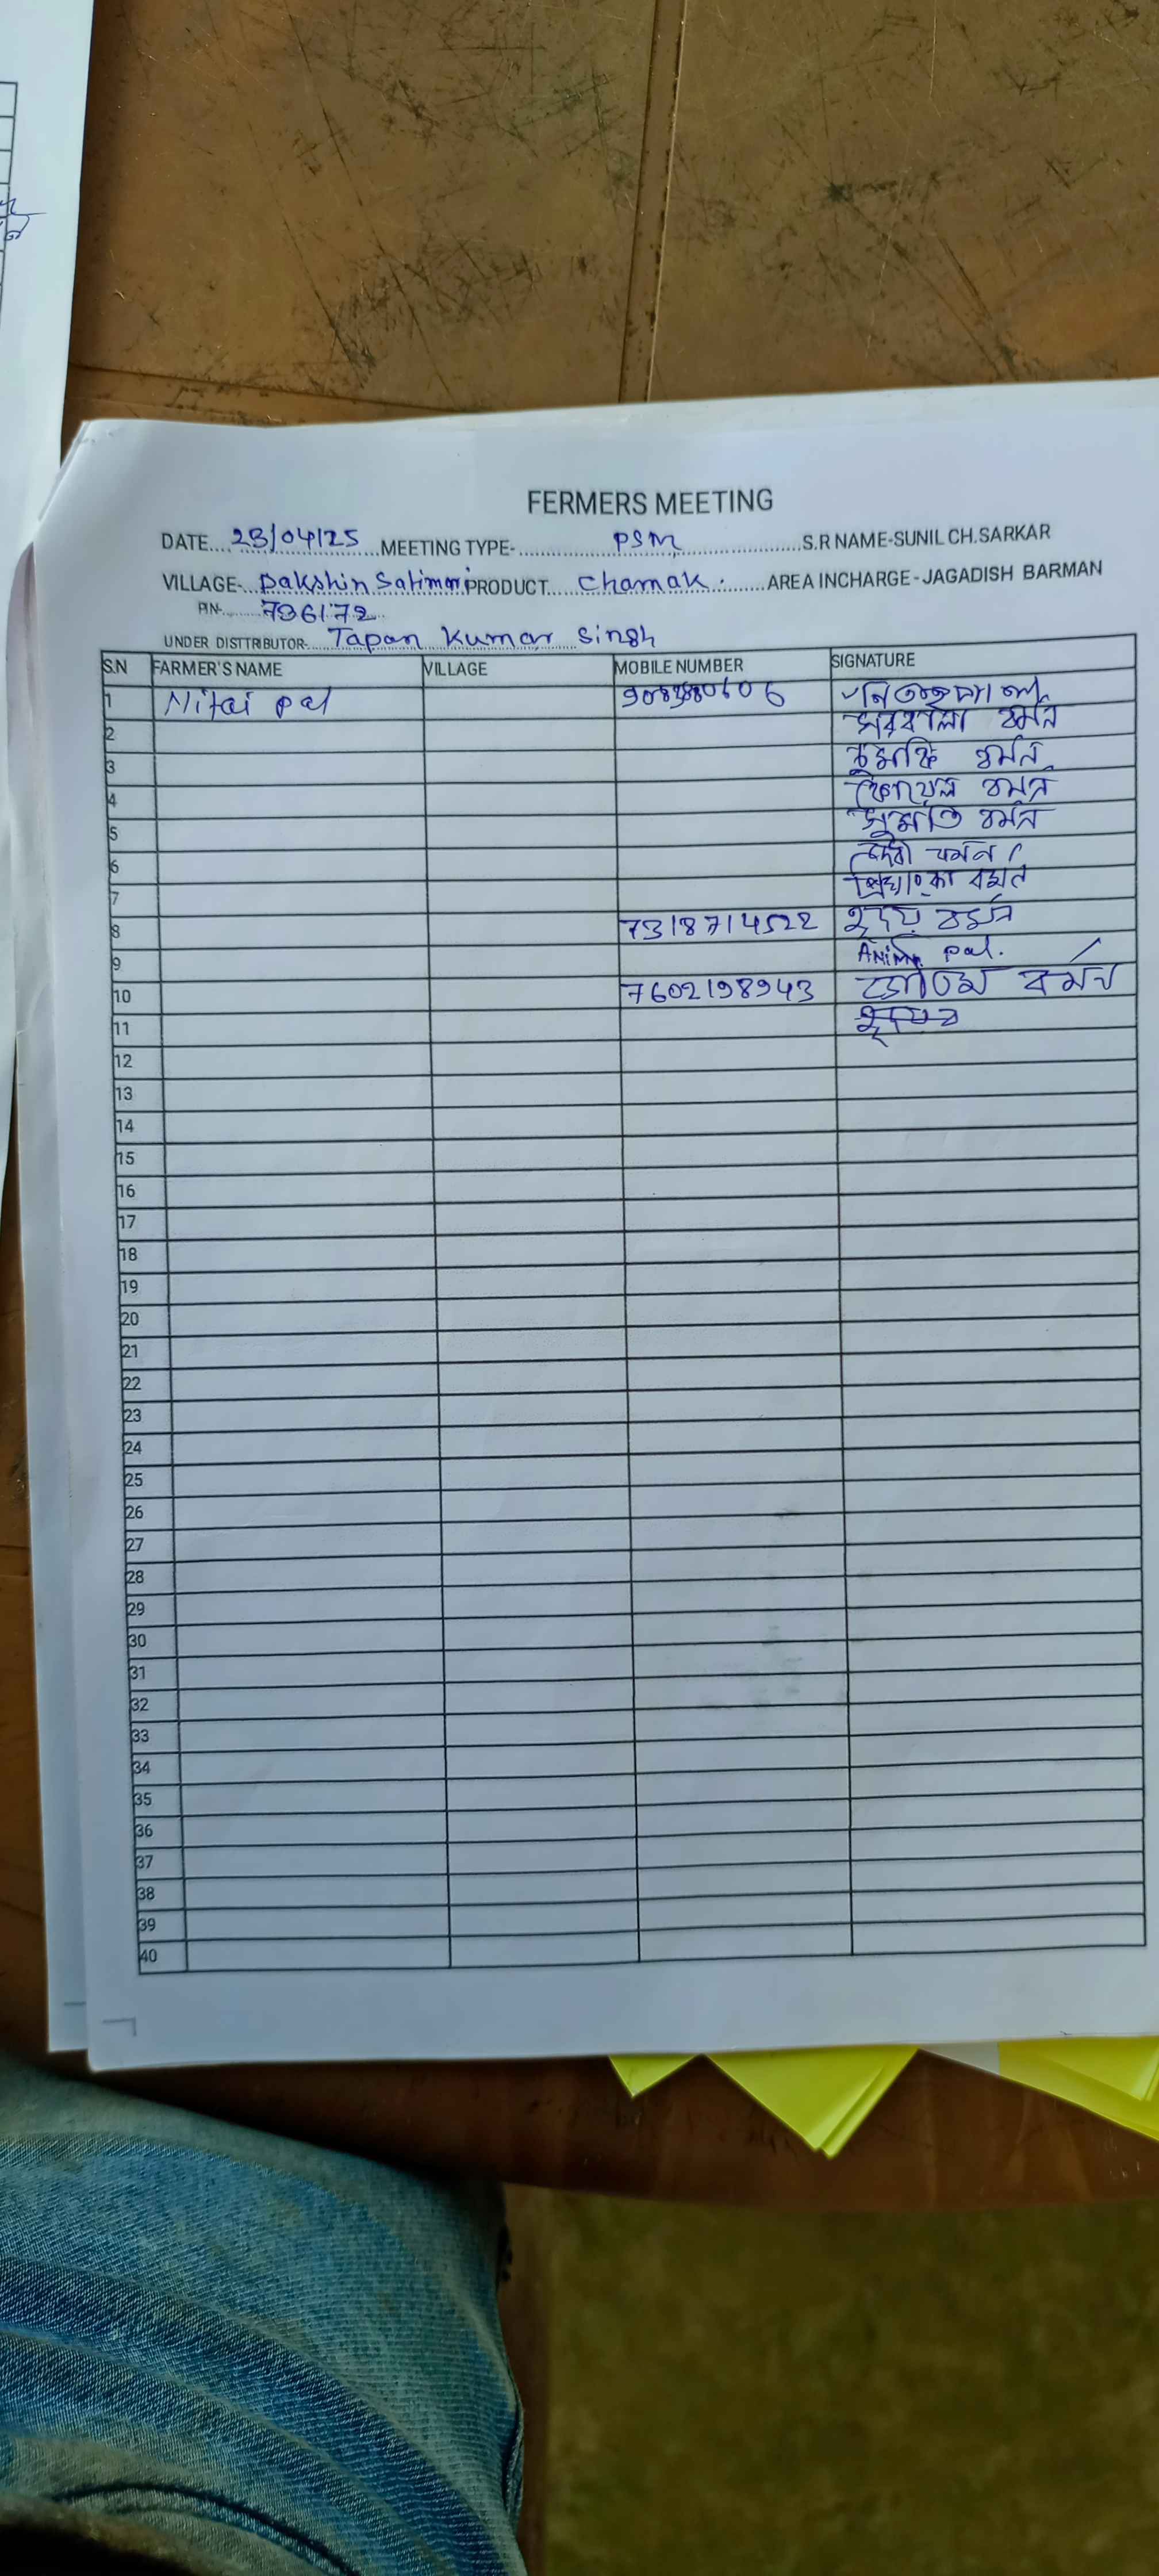 FERMERS MEETING
DATE....23/04/25....MEETING TYPE-..........PSM..........S.R NAME-SUNIL CH.SARKAR
VILLAGE-..Dakshin Salimari PRODUCT....Chamak.......AREA INCHARGE-JAGADISH BARMAN
PIN-......736172....
UNDER DISTTRIBUTOR-....Tapan Kumar Singh
S.N FARMER'S NAME VILLAGE MOBILE NUMBER SIGNATURE
1 Nitai pal নিতাই পাল
2 সরবালা বর্মন
3 বর্মন
4 বর্মন
5 সুমতি বর্মন
6 দেবী বর্মন
7 প্রিয়াংকা বর্মন
8 7318714522 হৃদয় বর্মন
9 Anima pal.
10 7602198943 গৌতম বর্মন
11
12
13
14
15
16
17
18
19
20
21
22
23
24
25
26
27
28
29
30
31
32
33
34
35
36
37
38
39
40